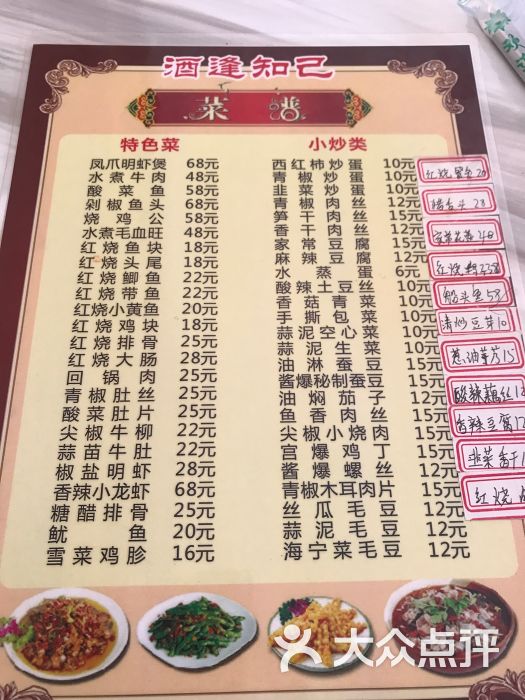 酒逢知己
菜谱
特色菜
凤爪明虾煲 68元
水煮牛肉 48元
酸菜鱼 58元
剁椒鱼头 68元
烧鸡公 58元
水煮毛血旺 48元
红烧鱼块 18元
红烧头尾 18元
红烧鲫鱼 22元
红烧带鱼 22元
红烧小黄鱼 20元
红烧鸡块 18元
红烧排骨 25元
红烧大肠 28元
回锅肉 25元
青椒肚丝 25元
酸菜肚片 25元
尖椒牛柳 22元
蒜苗牛肚 22元
椒盐明虾 28元
香辣小龙虾 68元
糖醋排骨 25元
鱿鱼 20元
雪菜鸡胗 16元
小炒类
西红柿炒蛋 10元
青椒炒蛋 10元
韭菜炒蛋 10元
青椒肉丝 12元
笋干肉丝 12元
香干肉丝 12元
家常豆腐 12元
麻辣豆腐 10元
水蒸蛋 6元
酸辣土豆丝 10元
香菇青菜 10元
手撕包菜 10元
蒜泥空心菜 10元
蒜泥生菜 10元
油淋蚕豆 12元
酱爆秘制蚕豆 12元
油焖茄子 12元
鱼香肉丝 15元
尖椒小烧肉 15元
宫爆鸡丁 15元
酱爆螺丝 12元
青椒木耳肉片 15元
丝瓜毛豆 12元
蒜泥毛豆 12元
海宁菜毛豆 12元
28
红烧
鱼头 58
清炒豆芽 10
葱油芋艿 15
酸辣藕丝
香辣豆腐
韭菜香干
红烧
大众点评